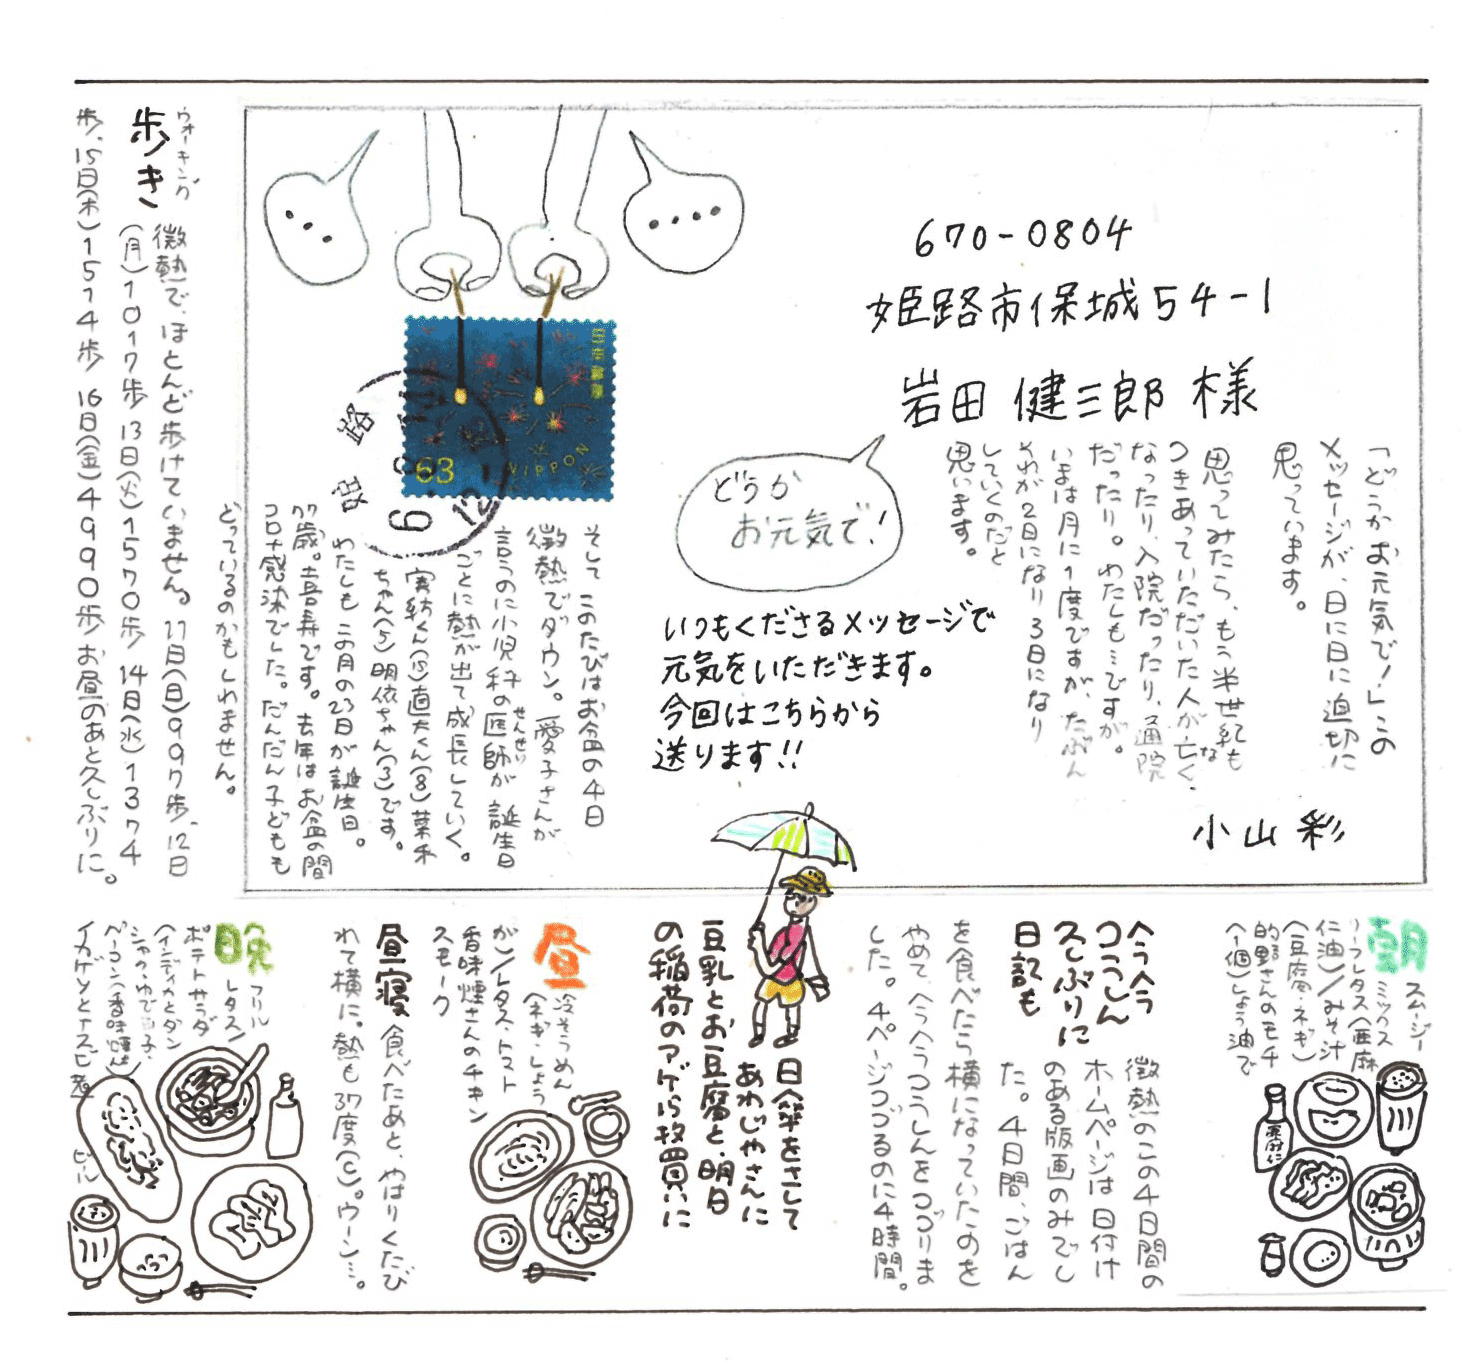 670-0804
姫路市保城54-1
岩田 健三郎 様
「どうかお元気で!」この
メッセージが、日に日に迫切に
思っています。
思ってみたら、もう半世紀も
つきあっていただいた人が亡く
なったり、入院だったり、通院
だったり。わたしも…ですが。
いまは月に1度ですが、たぶん
それが2日になり3日になり
していくのだと
思います。
小山 彩
どうか
お元気で!
いつもくださるメッセージで
元気をいただきます。
今回はこちらから
送ります!!
日本郵便
63
NIPPON
姫路
そして このたびはお盆の4日
微熱でダウン。愛子さんが
言うのに小児科の医師が 誕生日
せんせい
ごとに熱が出て成長していく。
実紡くん(15)直大くん(8)菜禾
ちゃん(5)明依ちゃん(3)です。
わたしも この月の23日が誕生日。
77歳。喜寿です。去年はお盆の間
コロナ感染でした。だんだん子どもも
どっているのかもしれません。
ウォーキング
歩き
微熱で、ほとんど歩けていません。11日(日)997歩、12日
(月)1017歩 13日(火)1570歩 14日(水)1374
歩、15日(木)1514歩 16日(金)4990歩 お昼のあと久しぶりに。
朝
スムージー
ミックス
リーフレタス(亜麻
仁油)/みそ汁
(豆腐・ネギ)
的野さんのモチ
(一個)しょう油で
亜麻仁
ヘラヘラ
つうしん
久しぶりに
日記も
微熱のこの4日間の
ホームページは 日付け
のある版画のみでし
た。4日間、ごはん
を食べたら横になっていたのを
やめて、ヘラヘラつうしんをつづりま
した。4ページつづるのに4時間。
日傘をさして
あわじやさんに
豆乳とお豆腐と、明日
の稲荷のアゲら牧買いに
昼
冷そうめん
(ネギ・しょう
が)/レタス、トマト
香味煙さんのチキン
スモーク
昼寝
食べたあと、やはりくたび
れて横に。熱も37度(C)。ウーン…。
晩
フリル
レタス/
ポテトサラダ
(インディカとダン
シャク・ゆで玉子、
ベーコン(香味煙)
イカゲソとナスビ煮
ビール